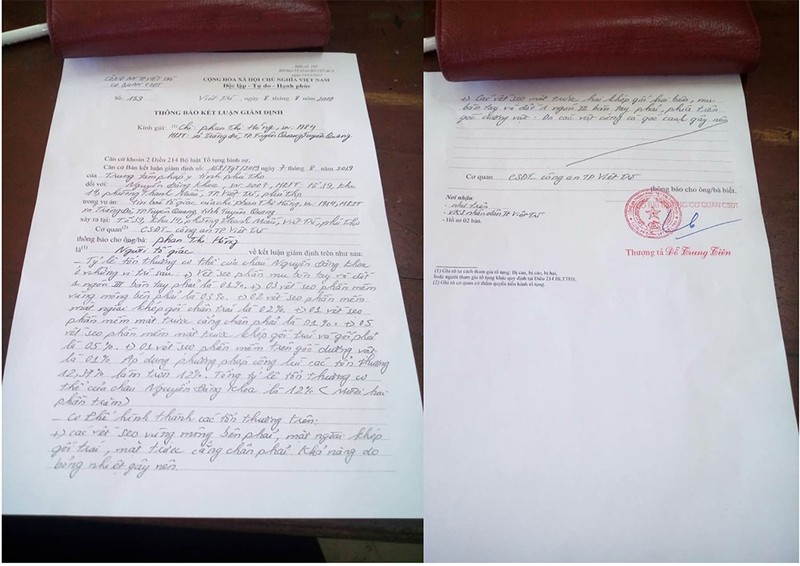 CÔNG AN TP VIỆT TRÌ
CƠ QUAN CSĐT
CỘNG HÒA XÃ HỘI CHỦ NGHĨA VIỆT NAM
Độc lập - Tự do - Hạnh phúc
Số: 153
Việt Trì, ngày 8 tháng 8 năm 2019
THÔNG BÁO KẾT LUẬN GIÁM ĐỊNH
Kính gửi: (1) Chị phan Thị Hồng, sn: 1984
HKTT: xã Tràng Đà, TP Tuyên Quang, Tuyên Quang
Căn cứ khoản 2 Điều 214 Bộ luật Tố tụng hình sự;
Căn cứ Bản kết luận giám định số: /2019 ngày 7 tháng 8 năm 2019
của Trung tâm pháp y tỉnh phú Thọ
đối với: Nguyễn Đăng Khoa, sn: 2009, HKTT: Tổ 39, khu
14, phường Thanh Miếu, TP Việt Trì, phú Thọ
trong vụ án: Tin báo tố giác của chị phan Thị Hồng, sn: 1984, HKTT
xã Tràng Đà, TP Tuyên Quang, tỉnh Tuyên Quang
xảy ra tại: Tổ 39, khu 14, phường Thanh Miếu, Việt Trì, phú Thọ
Cơ quan (2) CSĐT - công an TP Việt Trì
thông báo cho ông/bà: phan Thị Hồng
là (1) Người tố giác về kết luận giám định trên như sau:
- Tỷ lệ tổn thương cơ thể của cháu Nguyễn Đăng Khoa
ở những vị trí sau: +) Vết sẹo phần mu bàn tay và đốt
1 ngón III bàn tay phải là 03%. +) 03 vết sẹo phần mềm
vùng mông bên phải là 03%. +) 02 vết sẹo phần mềm
mặt ngoài khớp gối chân trái là 02%. +) 01 vết sẹo
phần mềm mặt trước cẳng chân phải là 01%. +) 05
vết sẹo phần mềm mặt trước khớp gối trái và gối phải
là 05%. +) 01 vết sẹo phần mềm trên gốc dương vật
là 01%. Áp dụng phương pháp cộng lùi các tổn thương
12,37% làm tròn 12%. Tổng tỷ lệ tổn thương cơ
thể của cháu Nguyễn Đăng Khoa là 12% (Mười hai
phần trăm)
- Cơ chế hình thành các tổn thương trên:
+) các vết sẹo vùng mông bên phải, mặt ngoài khớp
gối trái, mặt trước cẳng chân phải khả năng do
bỏng nhiệt gây nên
+) Các vết sẹo mặt trước hai khớp gối hai bên, mu
bàn tay và đốt 1 ngón III bàn tay phải, phía trên
gốc dương vật: Do các vật cứng có góc cạnh gây nên
Cơ quan CSĐT công an TP Việt Trì thông báo cho ông/bà biết.
Nơi nhận:
- như trên
- VKS nhân dân TP Việt Trì
- Hồ sơ 02 bản.
CƠ QUAN CSĐT
Thượng tá Đỗ Trung Tiến
(1) Ghi rõ tư cách tham gia tố tụng: Bị can, bị cáo, bị hại,
hoặc người tham gia tố tụng khác quy định tại Điều 214 BLTTHS;
(2) Ghi rõ cơ quan có thẩm quyền tiến hành tố tụng.